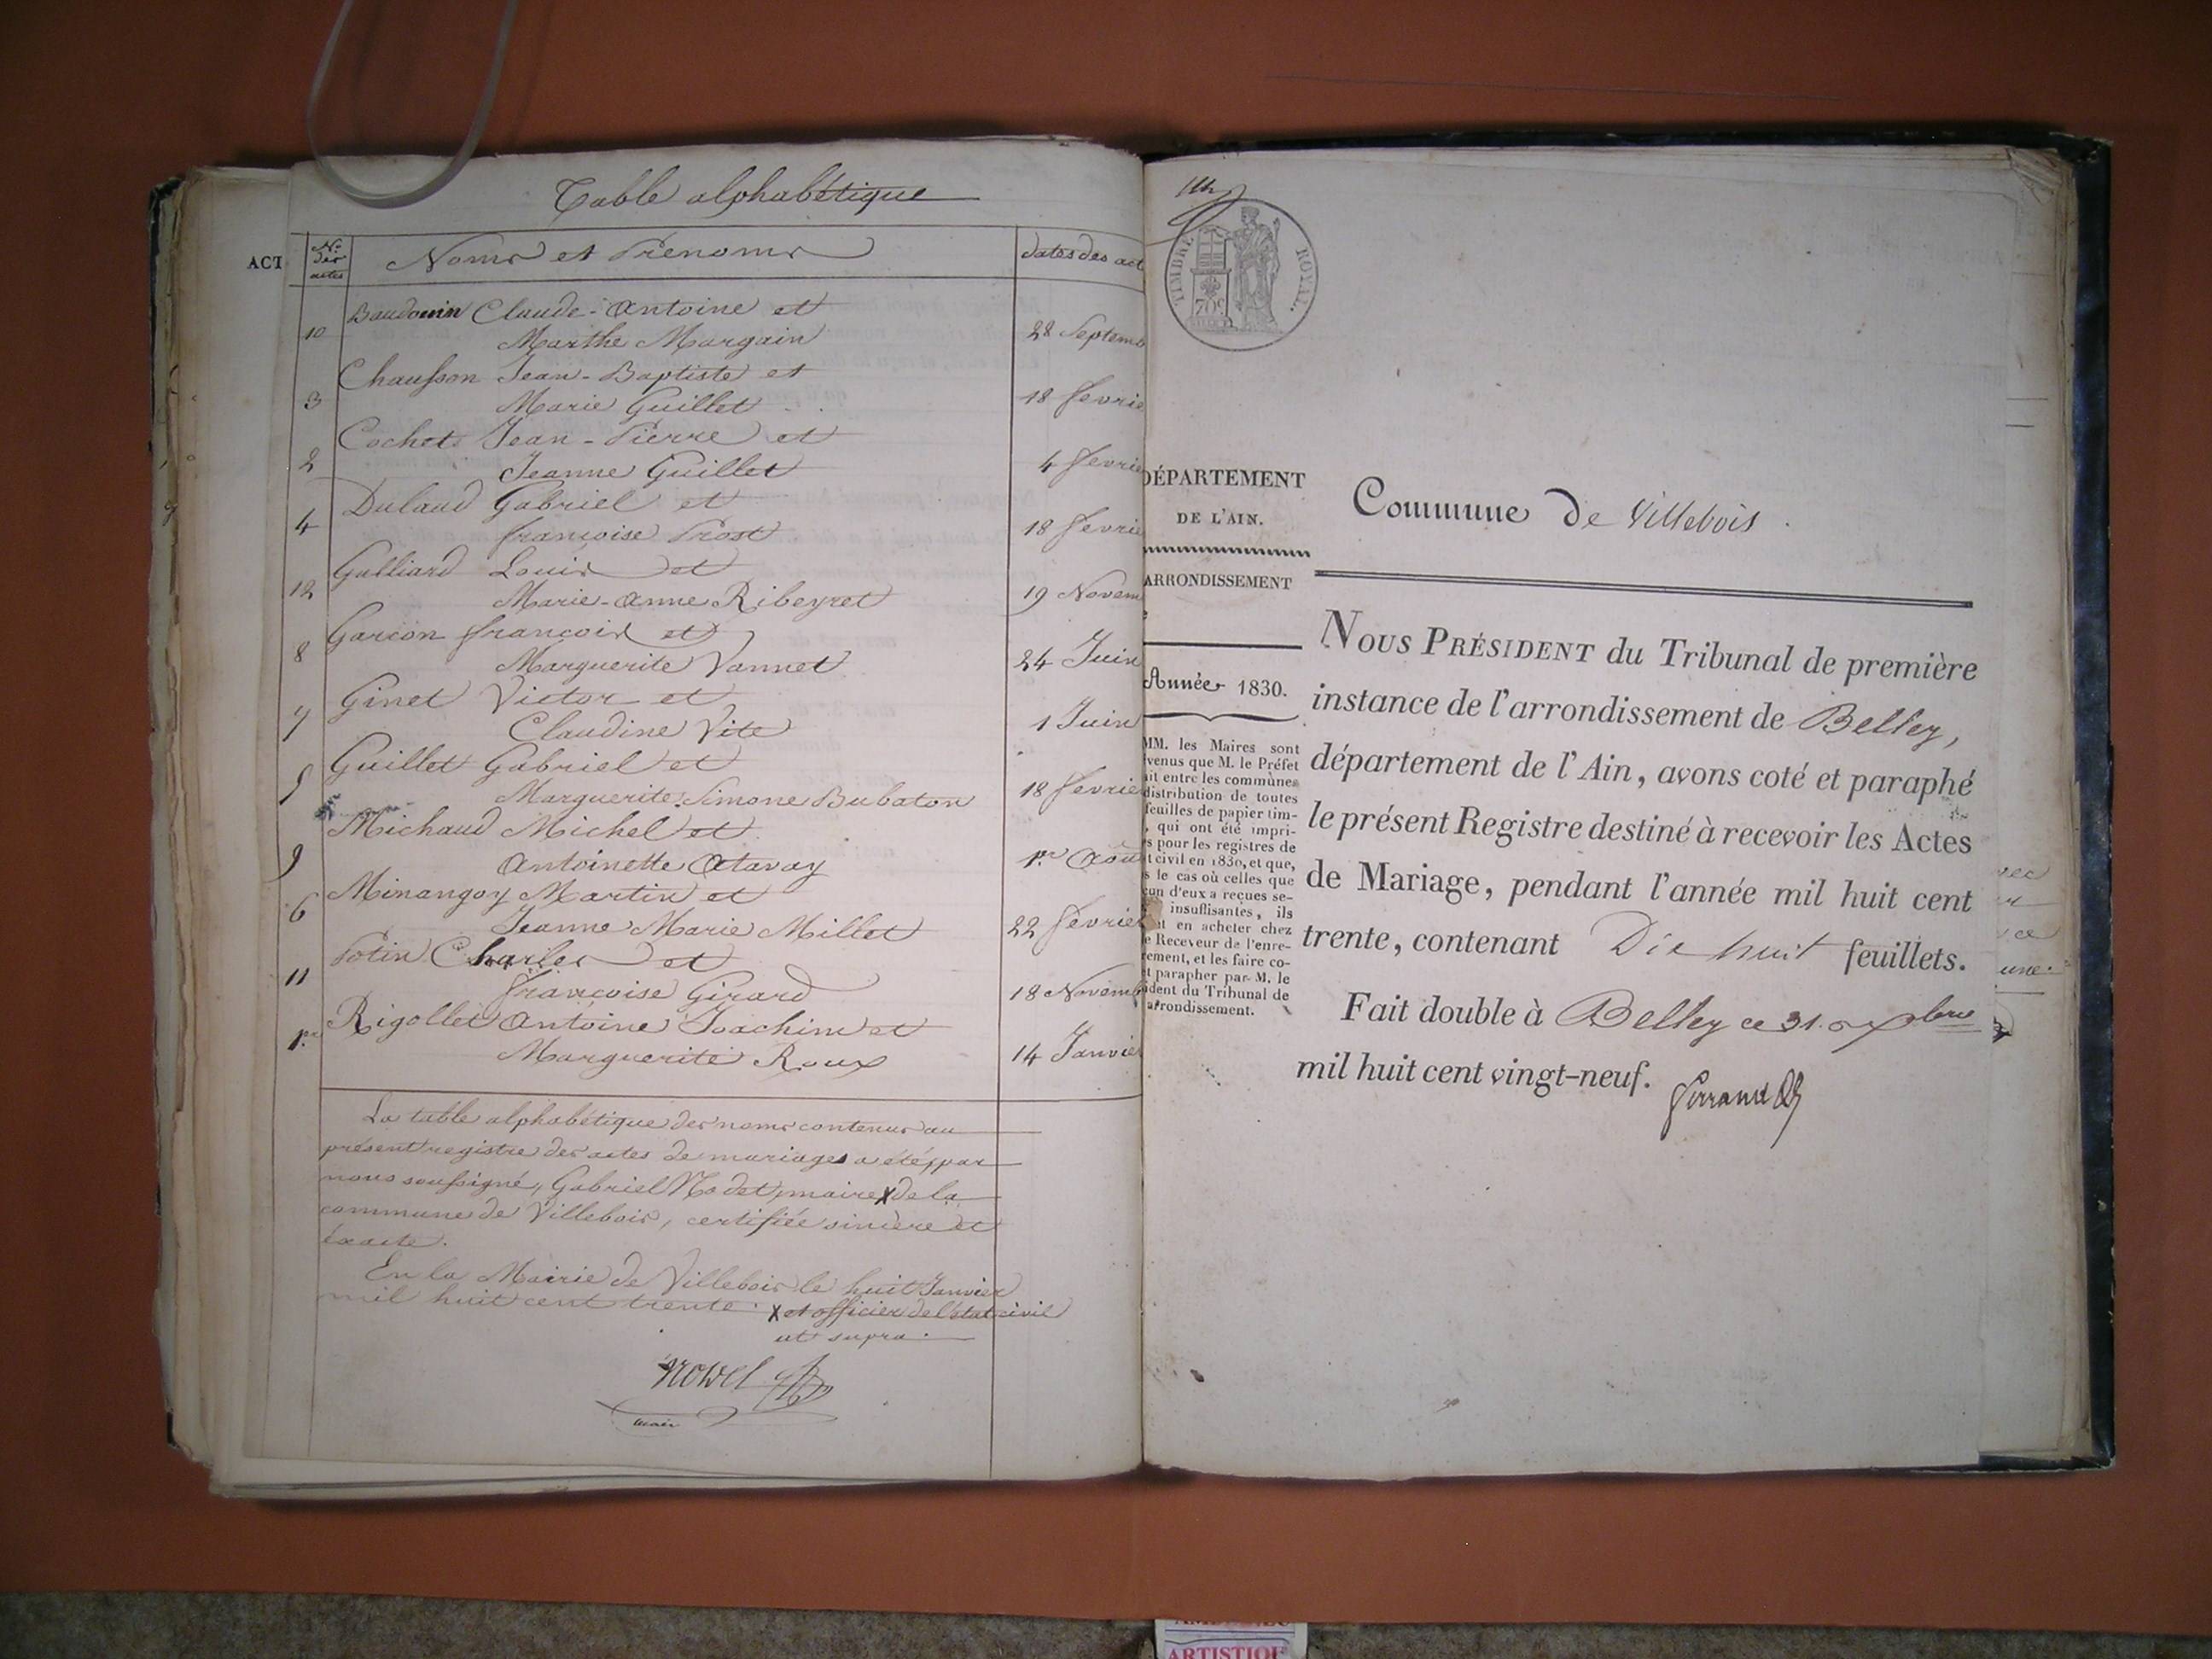 Table alphabétique
ACT
Nos des actes
Noms et Prénoms
dates des act
10 Baudouin Claude-Antoine et
Marthe Margain 28 Septemb
3 Chausson Jean-Baptiste et
Marie Guillet 18 fevrie
2 Cochet Jean-Pierre et
Jeanne Guillet 4 fevrie
4 Dulaud Gabriel et
françoise Prost 18 fevrie
12 Galliard Louis et
Marie-Anne Ribeyret 19 Novem
8 Garcon françois et
Marguerite Vannet 24 Juin
7 Ginet Victor et
Claudine Vite 1 Juin
5 Guillet Gabriel et
Marguerite Simone Bubaton 18 fevrie
9 Michaud Michel et
Antoinette Atavay 1er Aou
6 Minangoy Martin et
Jeanne Marie Millet 22 fevrier
11 Potin Charles et
françoise Girard 18 Novemb
1er Rigollet Antoine Joachim et
Marguerite Roux 14 Janvier
La table alphabétique des noms contenus au
présent registre des actes de mariages a été, par
nous soussigné, Gabriel Nodet, maire x de la
commune de Villebois, certifiée sincère et
éxacte.
En la Mairie de Villebois le huit Janvier
mil huit cent trente. x et officier de l'état civil
ut supra.
maire
1er
TIMBRE ROYAL.
70c
DÉPARTEMENT
DE L'AIN.
ARRONDISSEMENT
Année 1830.
MM. les Maires sont
venus que M. le Préfet
ait entre les communes
distribution de toutes
feuilles de papier tim-
, qui ont été impri-
s pour les registres de
t civil en 1830, et que,
s le cas où celles que
cun d'eux a reçues se-
insuffisantes, ils
nt en acheter chez
e Receveur de l'enre-
rement, et les faire co-
et parapher par M. le
sident du Tribunal de
arrondissement.
Commune de Villebois.
NOUS PRÉSIDENT du Tribunal de première
instance de l'arrondissement de Belley,
département de l'Ain, avons coté et paraphé
le présent Registre destiné à recevoir les Actes
de Mariage, pendant l'année mil huit cent
trente, contenant Dix huit feuillets.
Fait double à Belley ce 31. Xbre
mil huit cent vingt-neuf.
vec
ce
une.
ARTISTIQUE